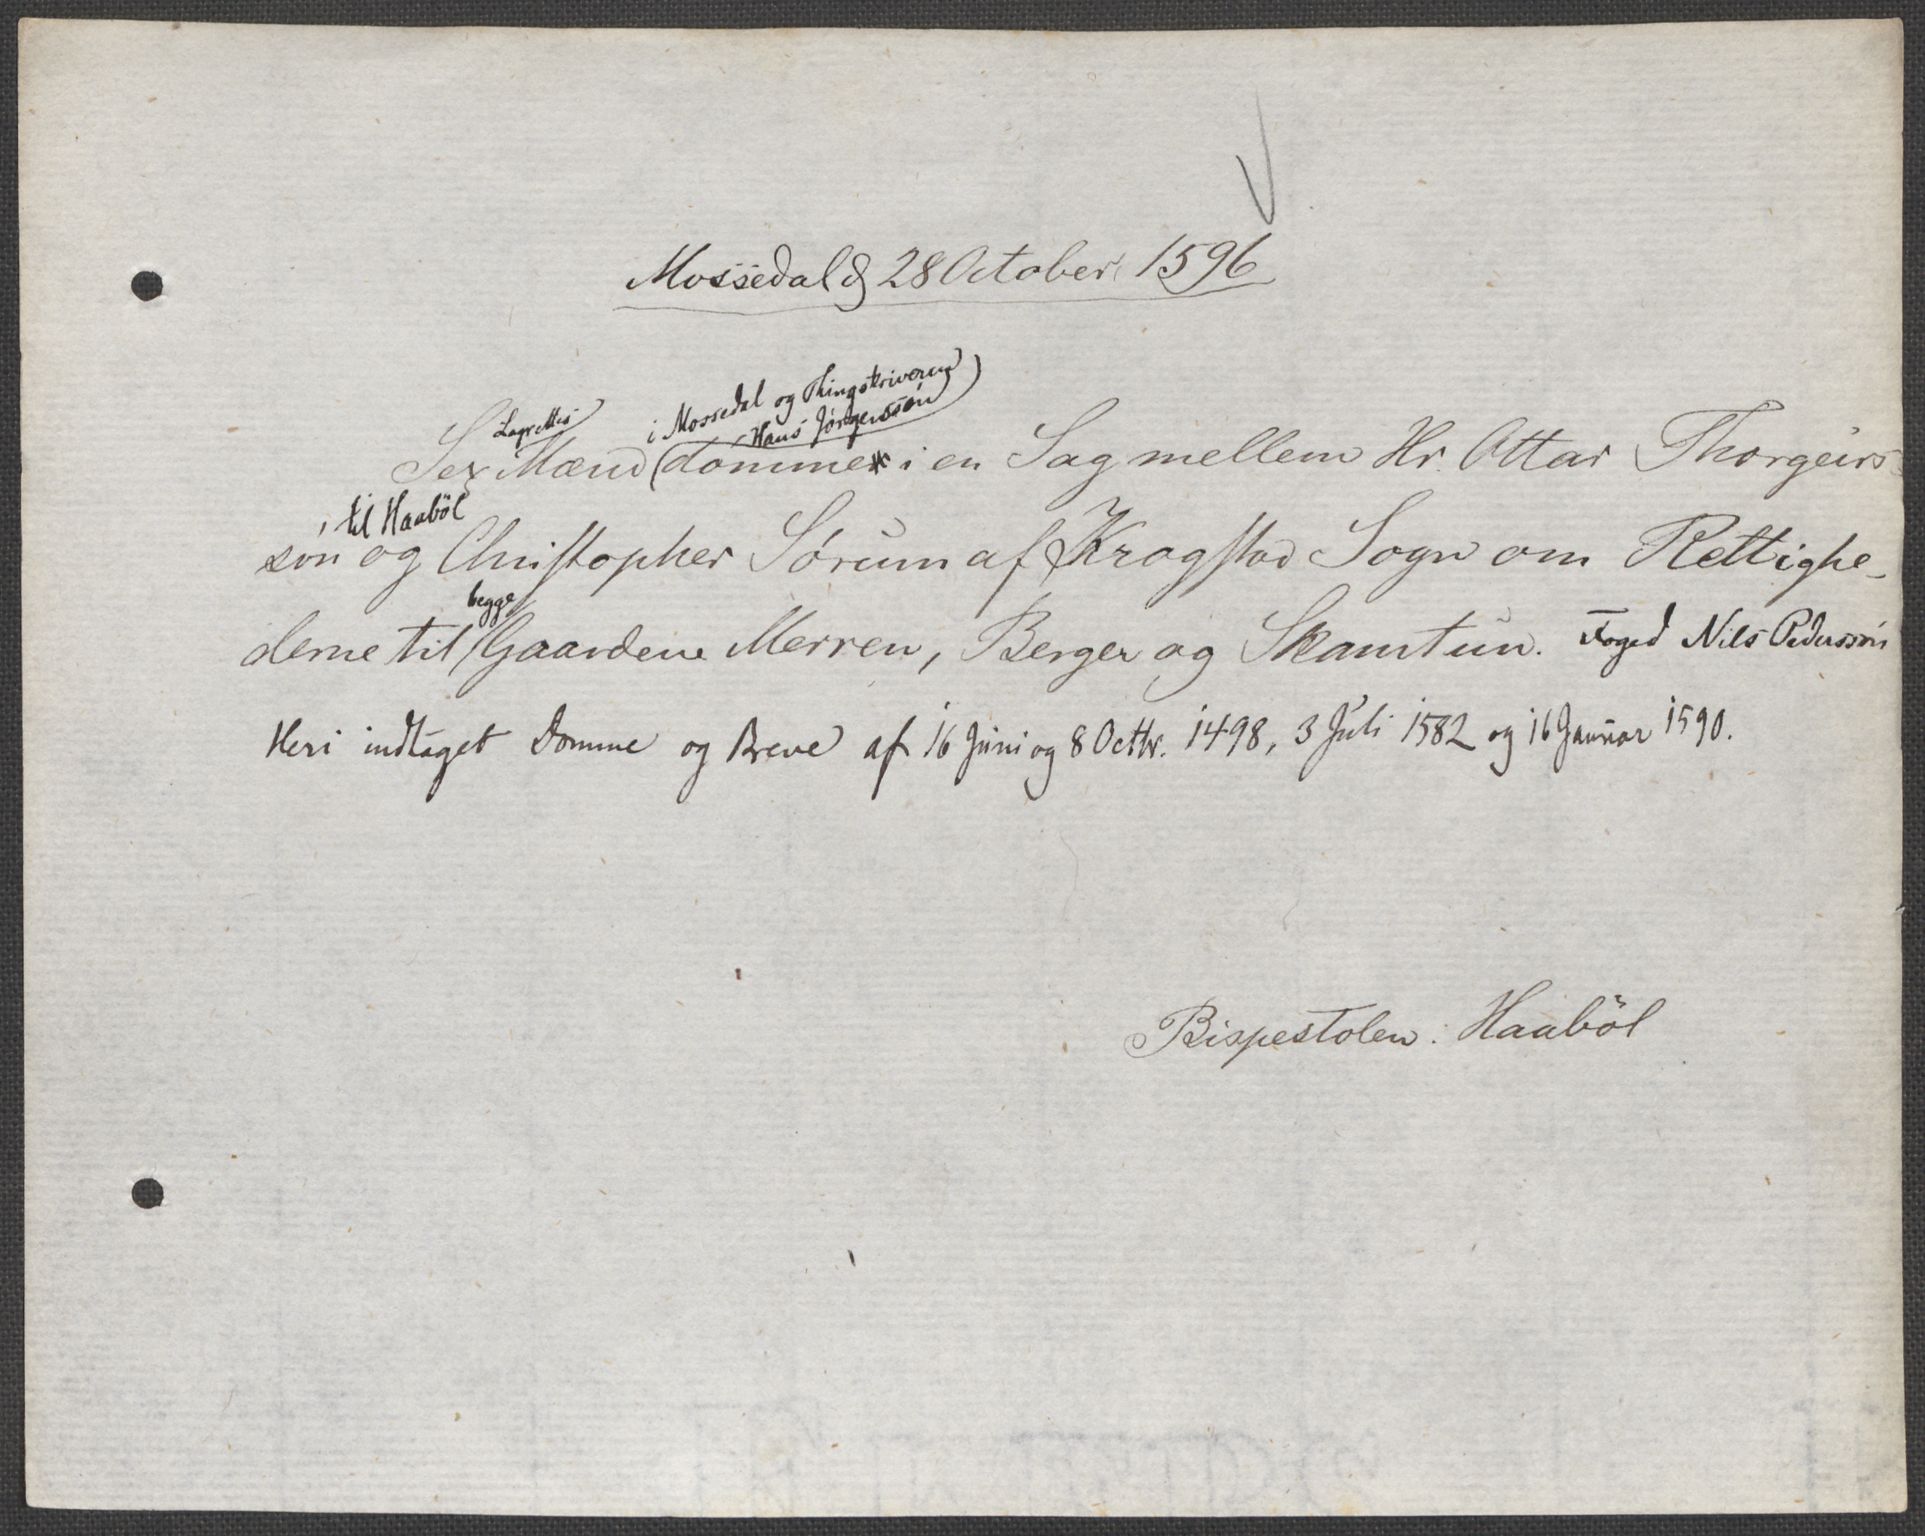 Mossedal d 28 October 1596
Lagrettes i Mossedal og Thingskriveren
Hans Jörgenssön
Sex Mænd dømme i en Sag mellem Hr. Ottar Thorgeirs-
til Haaböl
sön og Christopher Sörum af Kragstad Sogn om Rettighe-
begge
derne til Gaardene Merren, Berger og Skamtun. Foged Nils Pederssön
Heri indtaget Domme og Breve af 16 Juni og 8 Octbr. 1498, 3 Juli 1582 og 16 Januar 1590.
Bispestolen. Haaböl